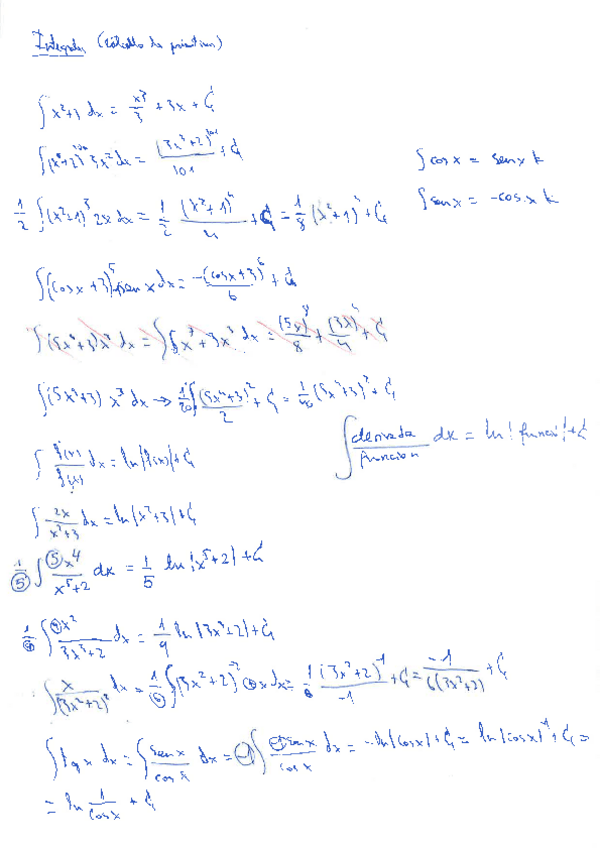 Integrales (cálculo de primitivas)
∫ x²+3 dx = x³/3 + 3x + C
∫ (x³+2)¹⁰⁰ 3x² dx = (3x³+2)¹⁰¹/101 + C
∫ cos x = sen x k
1/2 ∫ (x²+1)³ 2x dx = 1/2 (x²+1)⁴/4 + C = 1/8 (x²+1)⁴ + C
∫ sen x = -cos x k
∫ (cos x + 3)⁵ sen x dx = -(cos x + 3)⁶/6 + C
∫ (5x⁴+3)x³ dx = ∫ 5x⁷ + 3x³ dx = (5x)⁸/8 + (3x)⁴/4 + C
∫ (5x⁴+3) x³ dx → 1/20 ∫ (5x⁴+3)²/2 + C = 1/40 (5x⁴+3)² + C
∫ derivada/función dx = ln | función | + C
∫ f'(x)/f(x) dx = ln |f(x)| + C
∫ 2x/(x²+3) dx = ln |x²+3| + C
1/5 ∫ 5x⁴/(x⁵+2) dx = 1/5 ln |x⁵+2| + C
1/9 ∫ 9x²/(3x³+2) dx = 1/9 ln |3x³+2| + C
∫ x/(3x²+2)² dx = 1/6 ∫ (3x²+2)⁻² 6x dx = 1/6 (3x²+2)⁻¹/-1 + C = -1/6(3x²+2) + C
∫ tg x dx = ∫ sen x/cos x dx = -1 ∫ -sen x/cos x dx = -ln |cos x| + C = ln |cos x|⁻¹ + C =
= ln 1/cos x + C